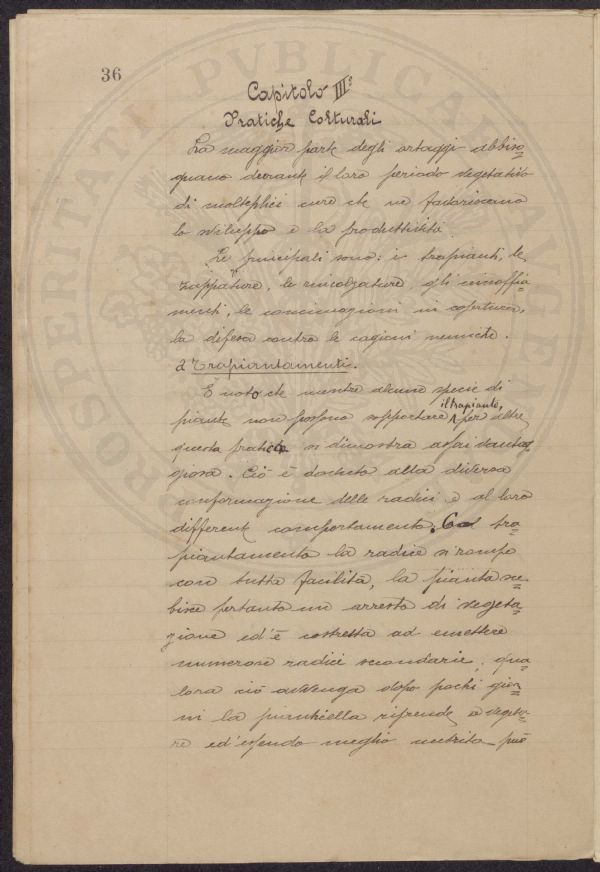 36
Capitolo III°
Pratiche Colturali
La maggior parte degli ortaggi abbiso=
gnano durante il loro periodo vegetativo
di molteplici cure che ne favoriscano
lo sviluppo e la produttività.
Le principali sono: i trapianti, le
zappature, le rincalzature, gli innaffia=
menti, le concimazioni in copertura,
la difesa contro le cagioni nemiche.
a Trapiantamenti.
E noto che mentre alcune specie di
piante non possono sopportare il trapianto, per altre
questa pratica si dimostra assai vantag=
giosa. Ciò è dovuto alla diversa
conformazione delle radici e al loro
differente comportamento. Col tra=
piantamento la radice si rompe
con tutta facilità, la pianta su=
bisce pertanto un arresto di vegeta=
zione ed è costretta ad emettere
numerose radici secondarie; qua=
lora ciò avvenga dopo pochi gior=
ni la pianticella riprende a vegeta=
re ed essendo meglio nutrita può
PROSPERITATI PVBLICAE AVGENDAE